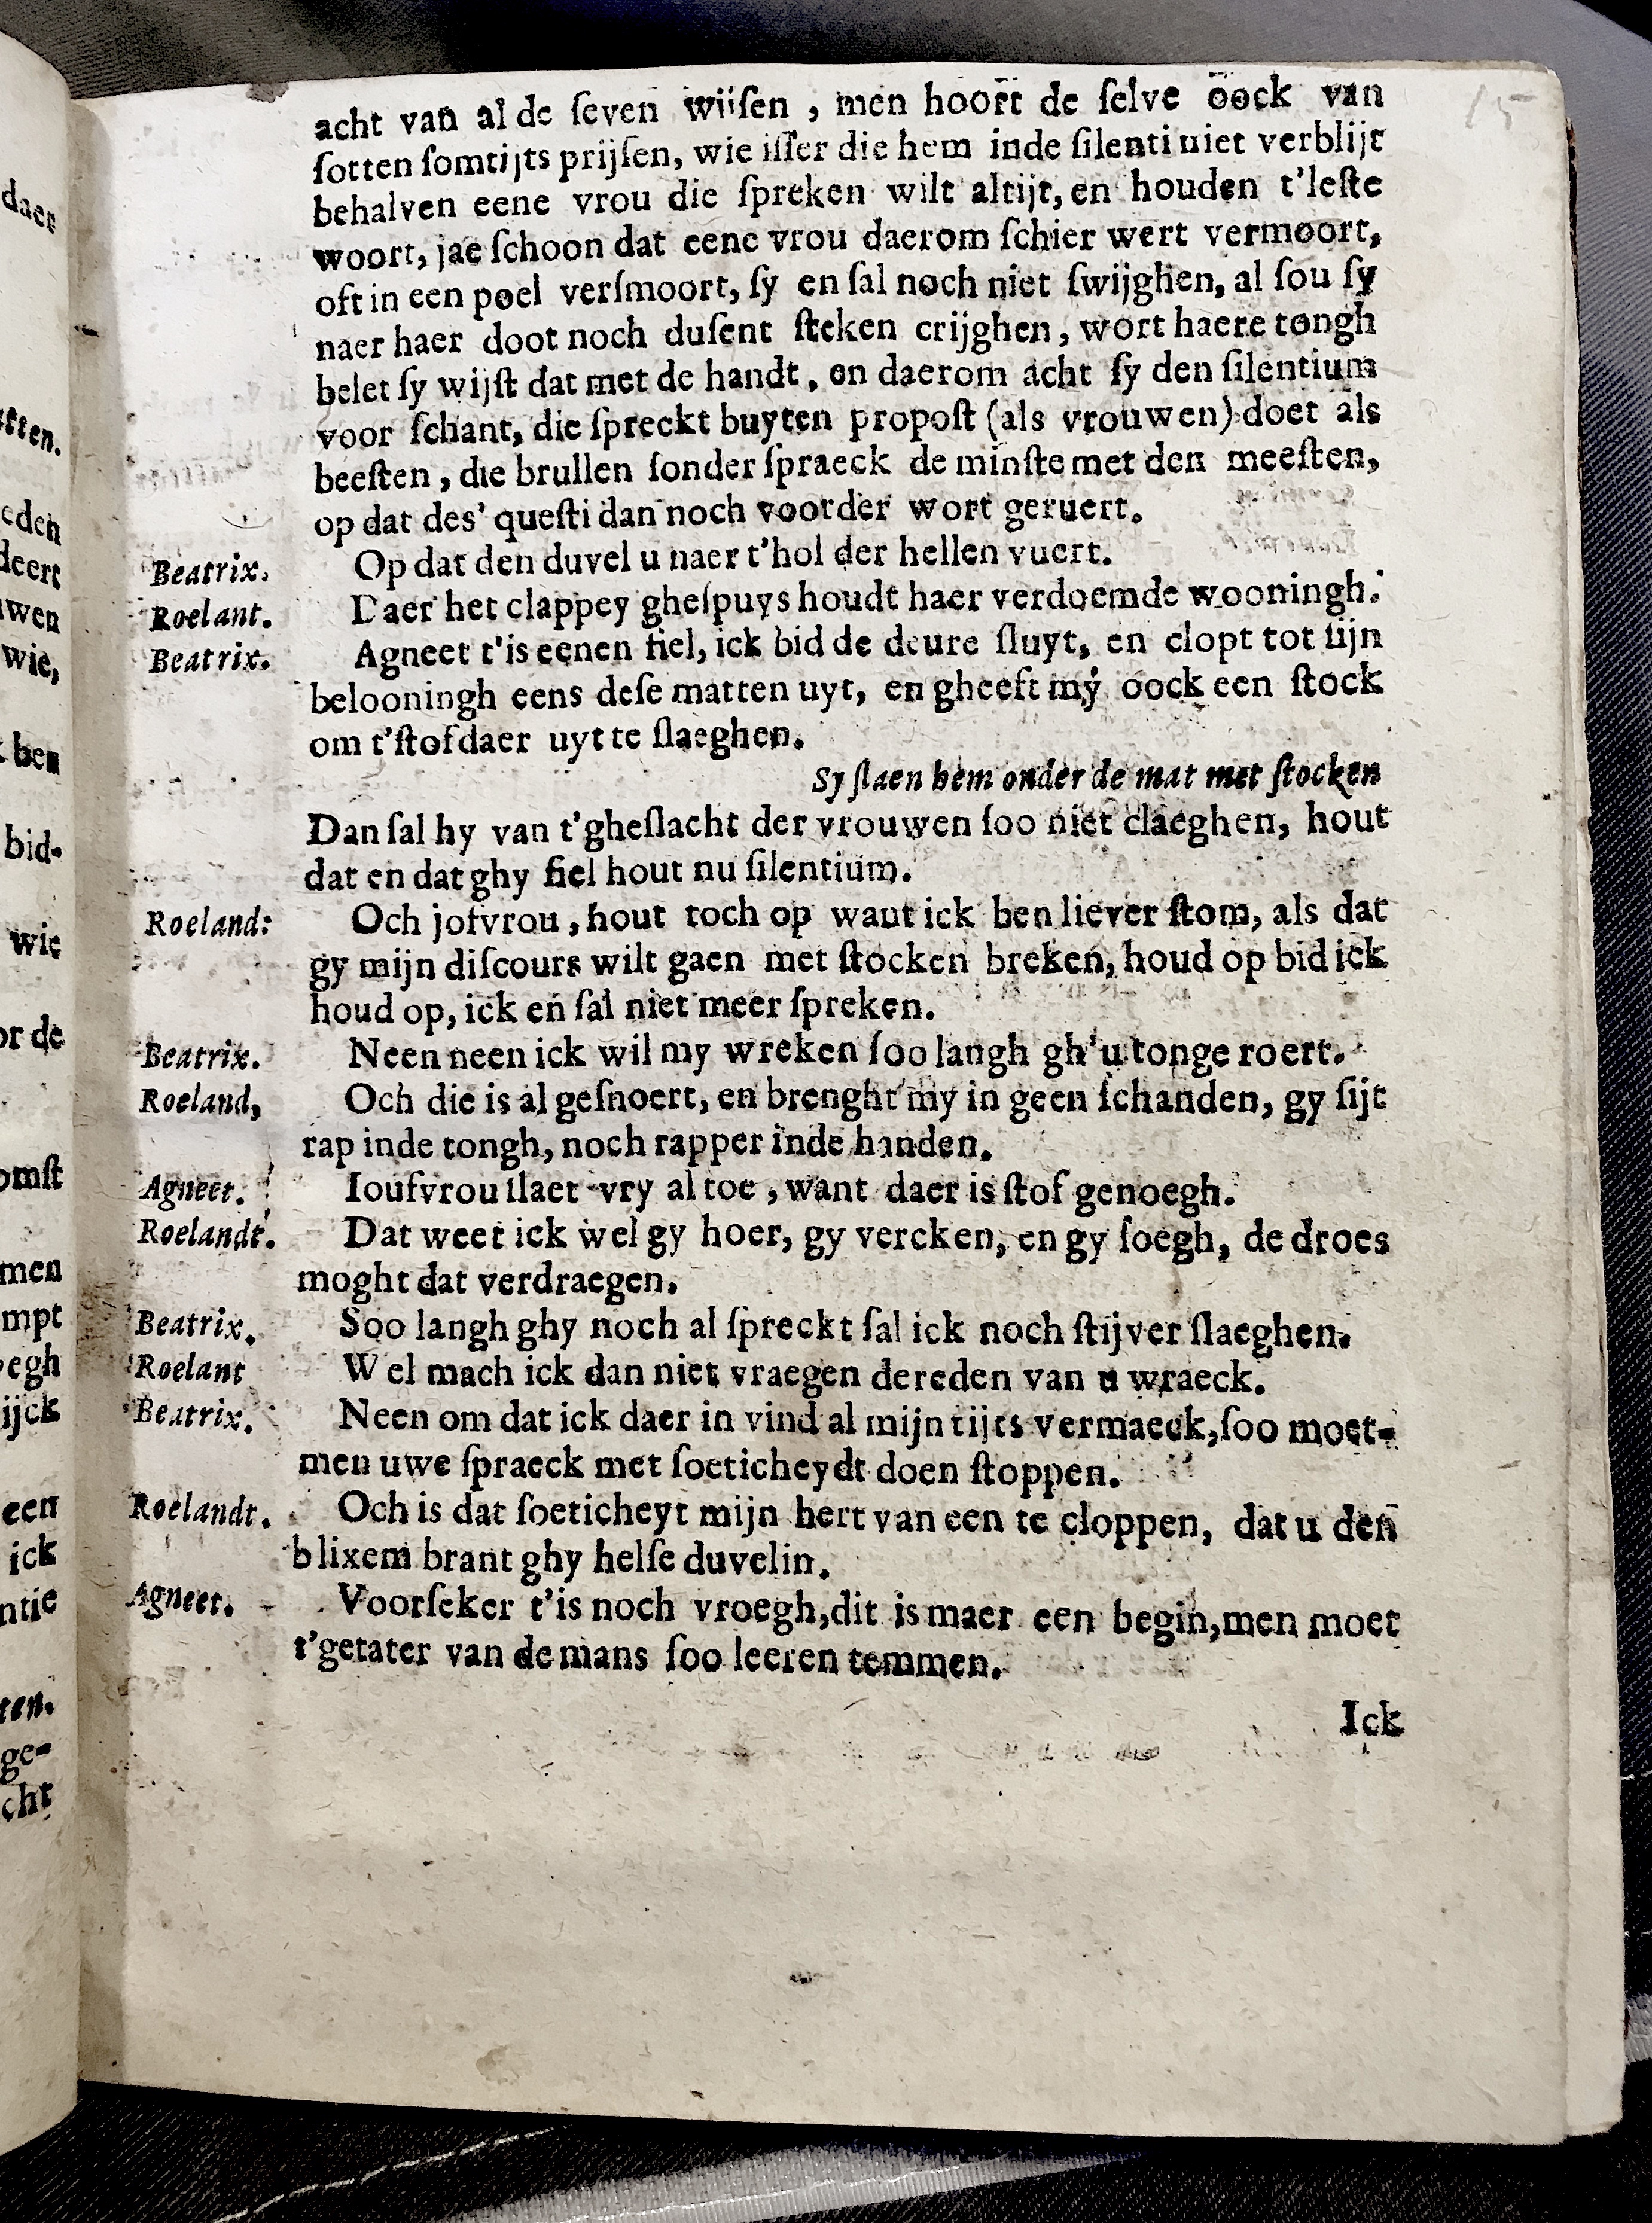 15
acht van al de ſeven wiiſen , men hoort de ſelve oock van
ſotten ſomtijts prijſen, wie iſſer die hem inde ſilenti niet verblijt
behalven eene vrou die ſpreken wilt altijt, en houden t'leſte
woort, jae ſchoon dat eene vrou daerom ſchier wert vermoort,
oft in een poel verſmoort, ſy en ſal noch niet ſwijghen, al ſou ſy
naer haer doot noch duſent ſteken crijghen, wort haere tongh
belet ſy wijſt dat met de handt, en daerom acht ſy den ſilentium
voor ſchant, die ſpreckt buyten propoſt (als vrouwen) doet als
beeſten, die brullen ſonder ſpraeck de minſte met den meeſten,
op dat des' queſti dan noch voorder wort geruert.
Beatrix. Op dat den duvel u naer t'hol der hellen vuert.
Roelant. Daer het clappey gheſpuys houdt haer verdoemde wooningh.
Beatrix. Agneet t'is eenen fiel, ick bid de deure ſluyt, en clopt tot ſijn
belooningh eens deſe matten uyt, en gheeft my oock een ſtock
om t'ſtof daer uyt te ſlaeghen.
Sy ſlaen hem onder de mat met ſtocken
Dan ſal hy van t'gheſlacht der vrouwen ſoo niet claeghen, hout
dat en dat ghy fiel hout nu ſilentium.
Roeland: Och joſvrou, hout toch op want ick ben liever ſtom, als dat
gy mijn diſcours wilt gaen met ſtocken breken, houd op bid ick
houd op, ick en ſal niet meer ſpreken.
Beatrix. Neen neen ick wil my wreken ſoo langh gh'u tonge roert.
Roeland, Och die is al geſnoert, en brenght my in geen ſchanden, gy ſijt
rap inde tongh, noch rapper inde handen.
Agneet. Iouſvrou ſlaet vry al toe, want daer is ſtof genoegh.
Roelandt. Dat weet ick wel gy hoer, gy vercken, en gy ſoegh, de droes
moght dat verdraegen.
Beatrix. Soo langh ghy noch al ſpreckt ſal ick noch ſtijver ſlaeghen.
Roelant Wel mach ick dan niet vraegen de reden van u wraeck.
Beatrix. Neen om dat ick daer in vind al mijn tijts vermaeck, ſoo moet-
men uwe ſpraeck met ſoeticheydt doen ſtoppen.
Roelandt. Och is dat ſoeticheyt mijn hert van een te cloppen, dat u den
blixem brant ghy helſe duvelin.
Agneet. Voorſeker t'is noch vroegh, dit is maer een begin, men moet
t'getater van de mans ſoo leeren temmen.
Ick